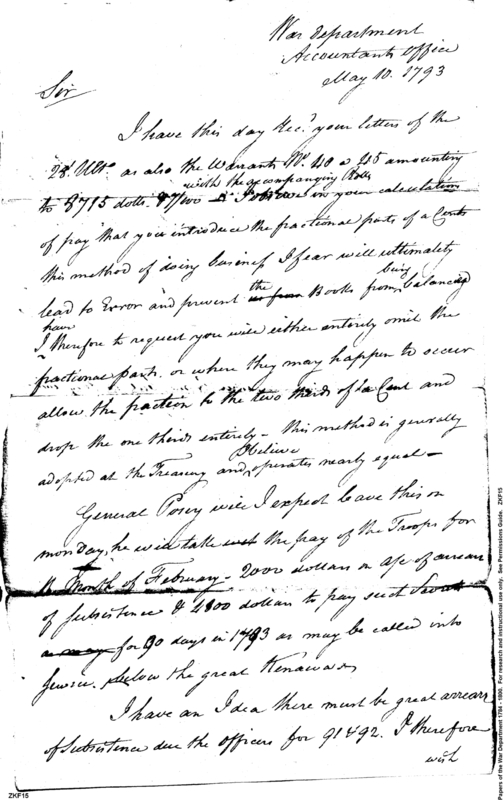 War department
Accountants office
May 10. 1793
Sir
I have this day Rec.d your letters of the
Ulto. as also the Warrants No. 40 a 45 amounting
with the accompanying Rolls
to 8715 dolls. 87/100 I observe in your calculation
of pay that you introduce the fractional parts of a Cent
this method of doing business I fear will ultimately
lead to Error and prevent the Books from being balanced
I have therefore to request you will either entirely omit the
fractional parts or where they may happen to occur
allow the fraction to the two thirds of a Cent and
drop the one thirds entirely - this method is generally
adopted at the Treasury and I believe operates nearly equal -
General Posey will I expect leave this on
monday, he will take the pay of the Troops for
Month of February - 2000 dollars on a/c of arrears
of Subsistence & 4800 dollars to pay such
for 90 days in 1793 as may be called into
Service. below the great Kenawas
I have an Idea there must be great arrears
of Subsistence due the officers for 91 & 92. I therefore
wish
ZKF15
Papers of the War Department 1784 - 1800. For research and instructional use only. See Permissions Guide. ZKF15